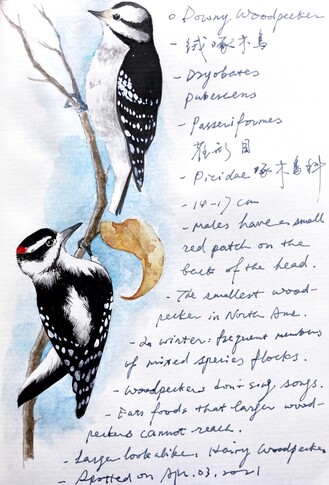 o Downy Woodpecker
- 绒啄木鸟
- Dryobates
pubescens
- Passeriformes
雀形目
- Picidae 啄木鸟科
- 14-17 cm
- Males have a small
red patch on the
back of the head.
- The smallest wood-
pecker in North Ame.
- In winter: frequent members
of mixed species flocks.
- Woodpeckers don't sing songs.
- Eats foods that larger wood-
peckers cannot reach.
- Larger lookalike, Hairy Woodpecker
- Spotted on Apr. 03, 2021